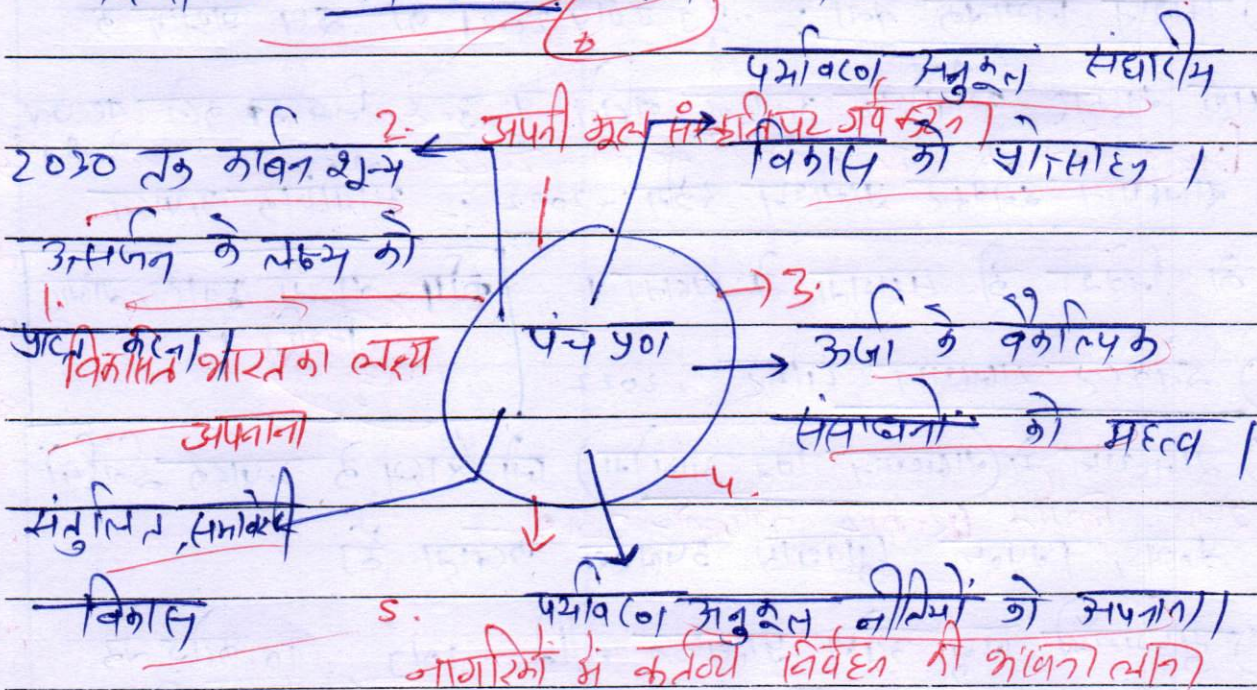 पर्यावरण अनुकूल संधारीय
2. अपनी मूल संस्कृति पर गर्व करना
2030 तक कार्बन शून्य
विकास को प्रोत्साहन ।
उत्सर्जन के लक्ष्य को
1.
3.
प्राप्त करना।
विकसित भारत का लक्ष्य
पंच प्रण
ऊर्जा के वैकल्पिक
अपनाना
संसाधनों को महत्व ।
4.
संतुलित, समावेशी
विकास
5.
पर्यावरण अनुकूल नीतियों को अपनाना।
नागरिकों में कर्तव्य निर्वहन की भावना लाना